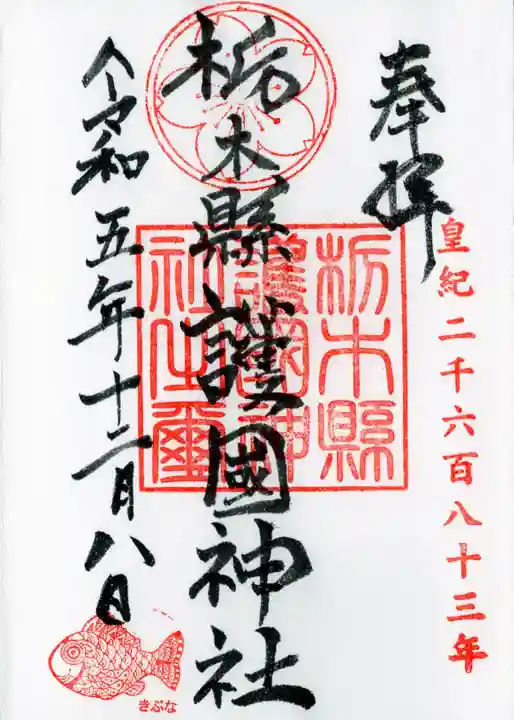 奉拝
皇紀二千六百八十三年
栃木縣護國神社
栃木縣
護國神
社之璽
令和五年十二月八日
きぶな